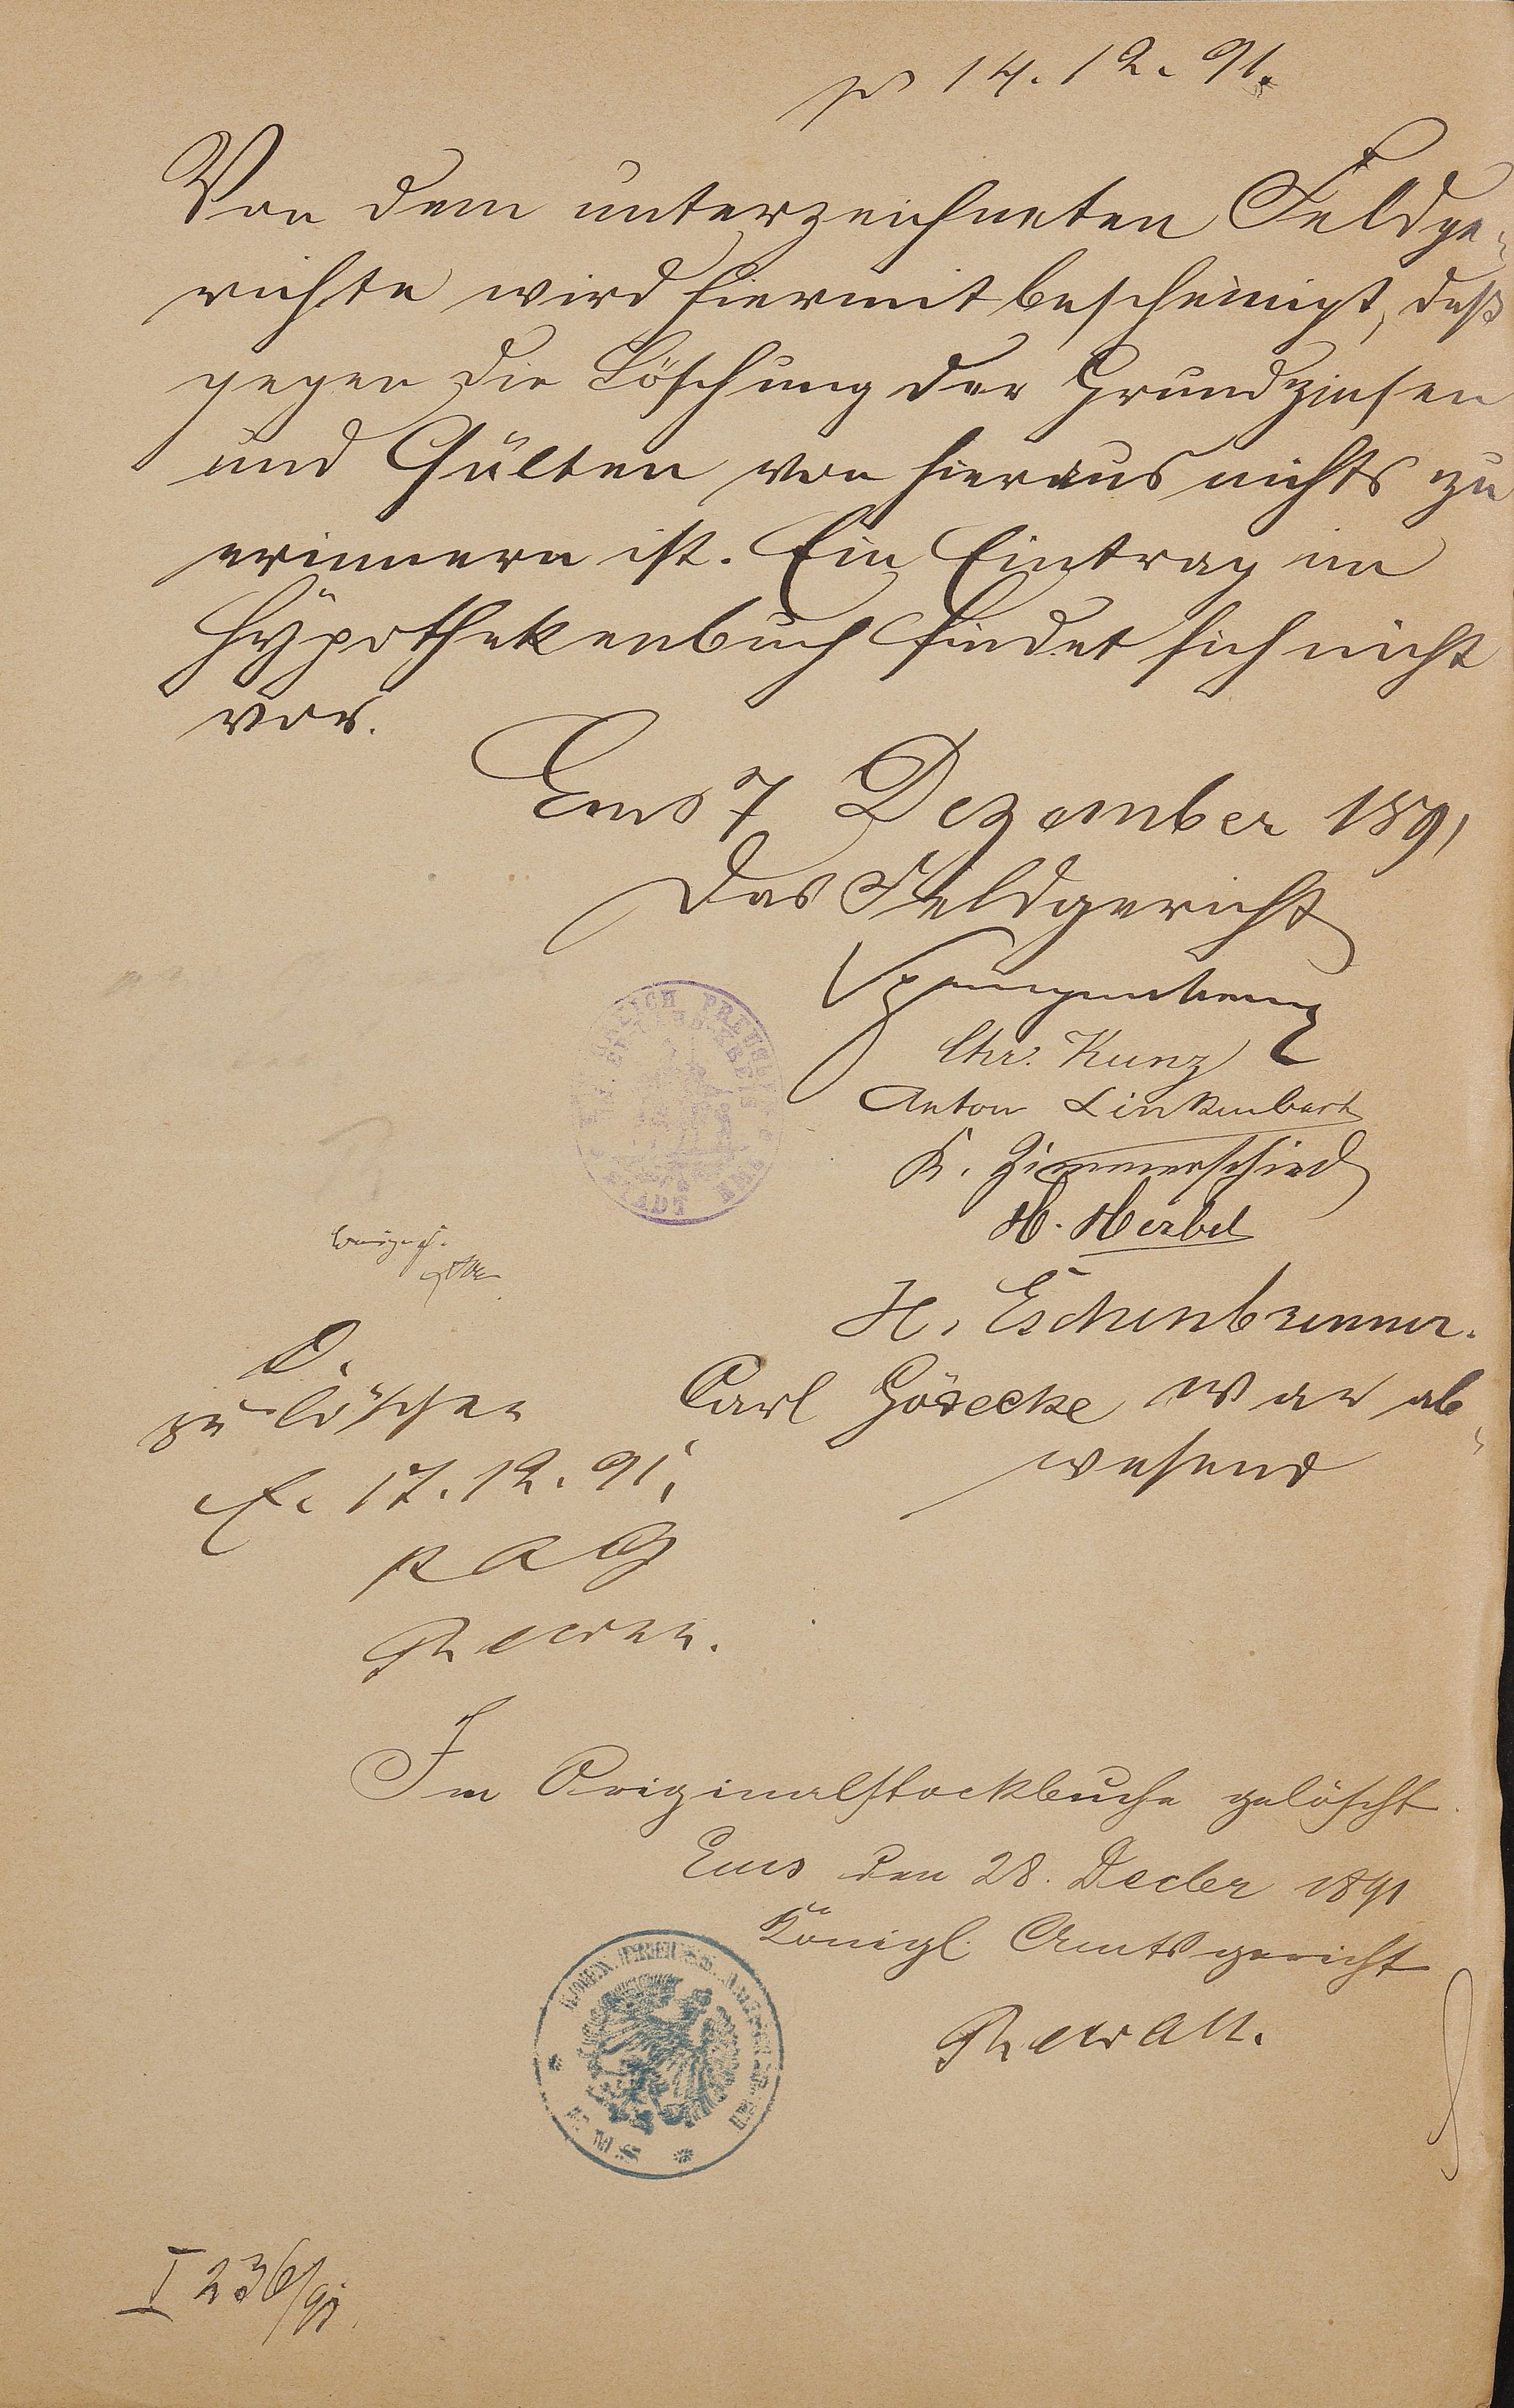 14.12.91.
Von dem unterzeichneten Feldge-
richte wird hiermit bescheinigt, daß
gegen die Löschung der Grundzinsen
und Gülten von hieraus nichts zu
erinnern ist. Ein Eintrag im
Hypothekenbuch findet sich nicht
vor.
Ems 7 Dezember 1891
Das Feldgericht
Spangenberg
Chr. Kunz
Anton Linkenbach
K. Zimmerschied
H. Herbel
H. Eschenbrenner.
Carl Gödecke war ab-
wesend
zu löschen
E. 17.12.91.
K A G
Im Originalstockbuche gelöscht.
Ems den 28. Decbr 1891
Königl. Amtsgericht
KOEN. PREUSS. AMTSGERICHT
* EMS *
I 236/91.